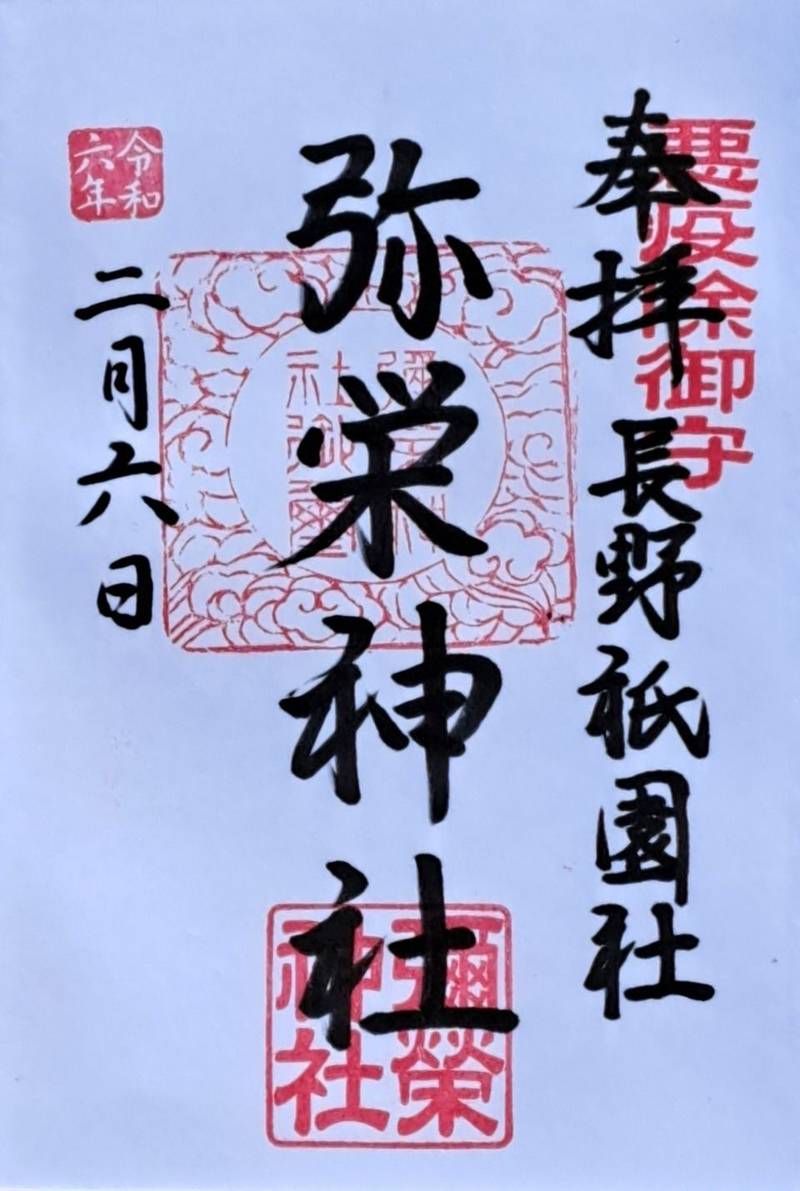 悪疫除御守
奉拝 長野祇園社
弥栄神社
彌榮
神社
令和
六年
二月六日